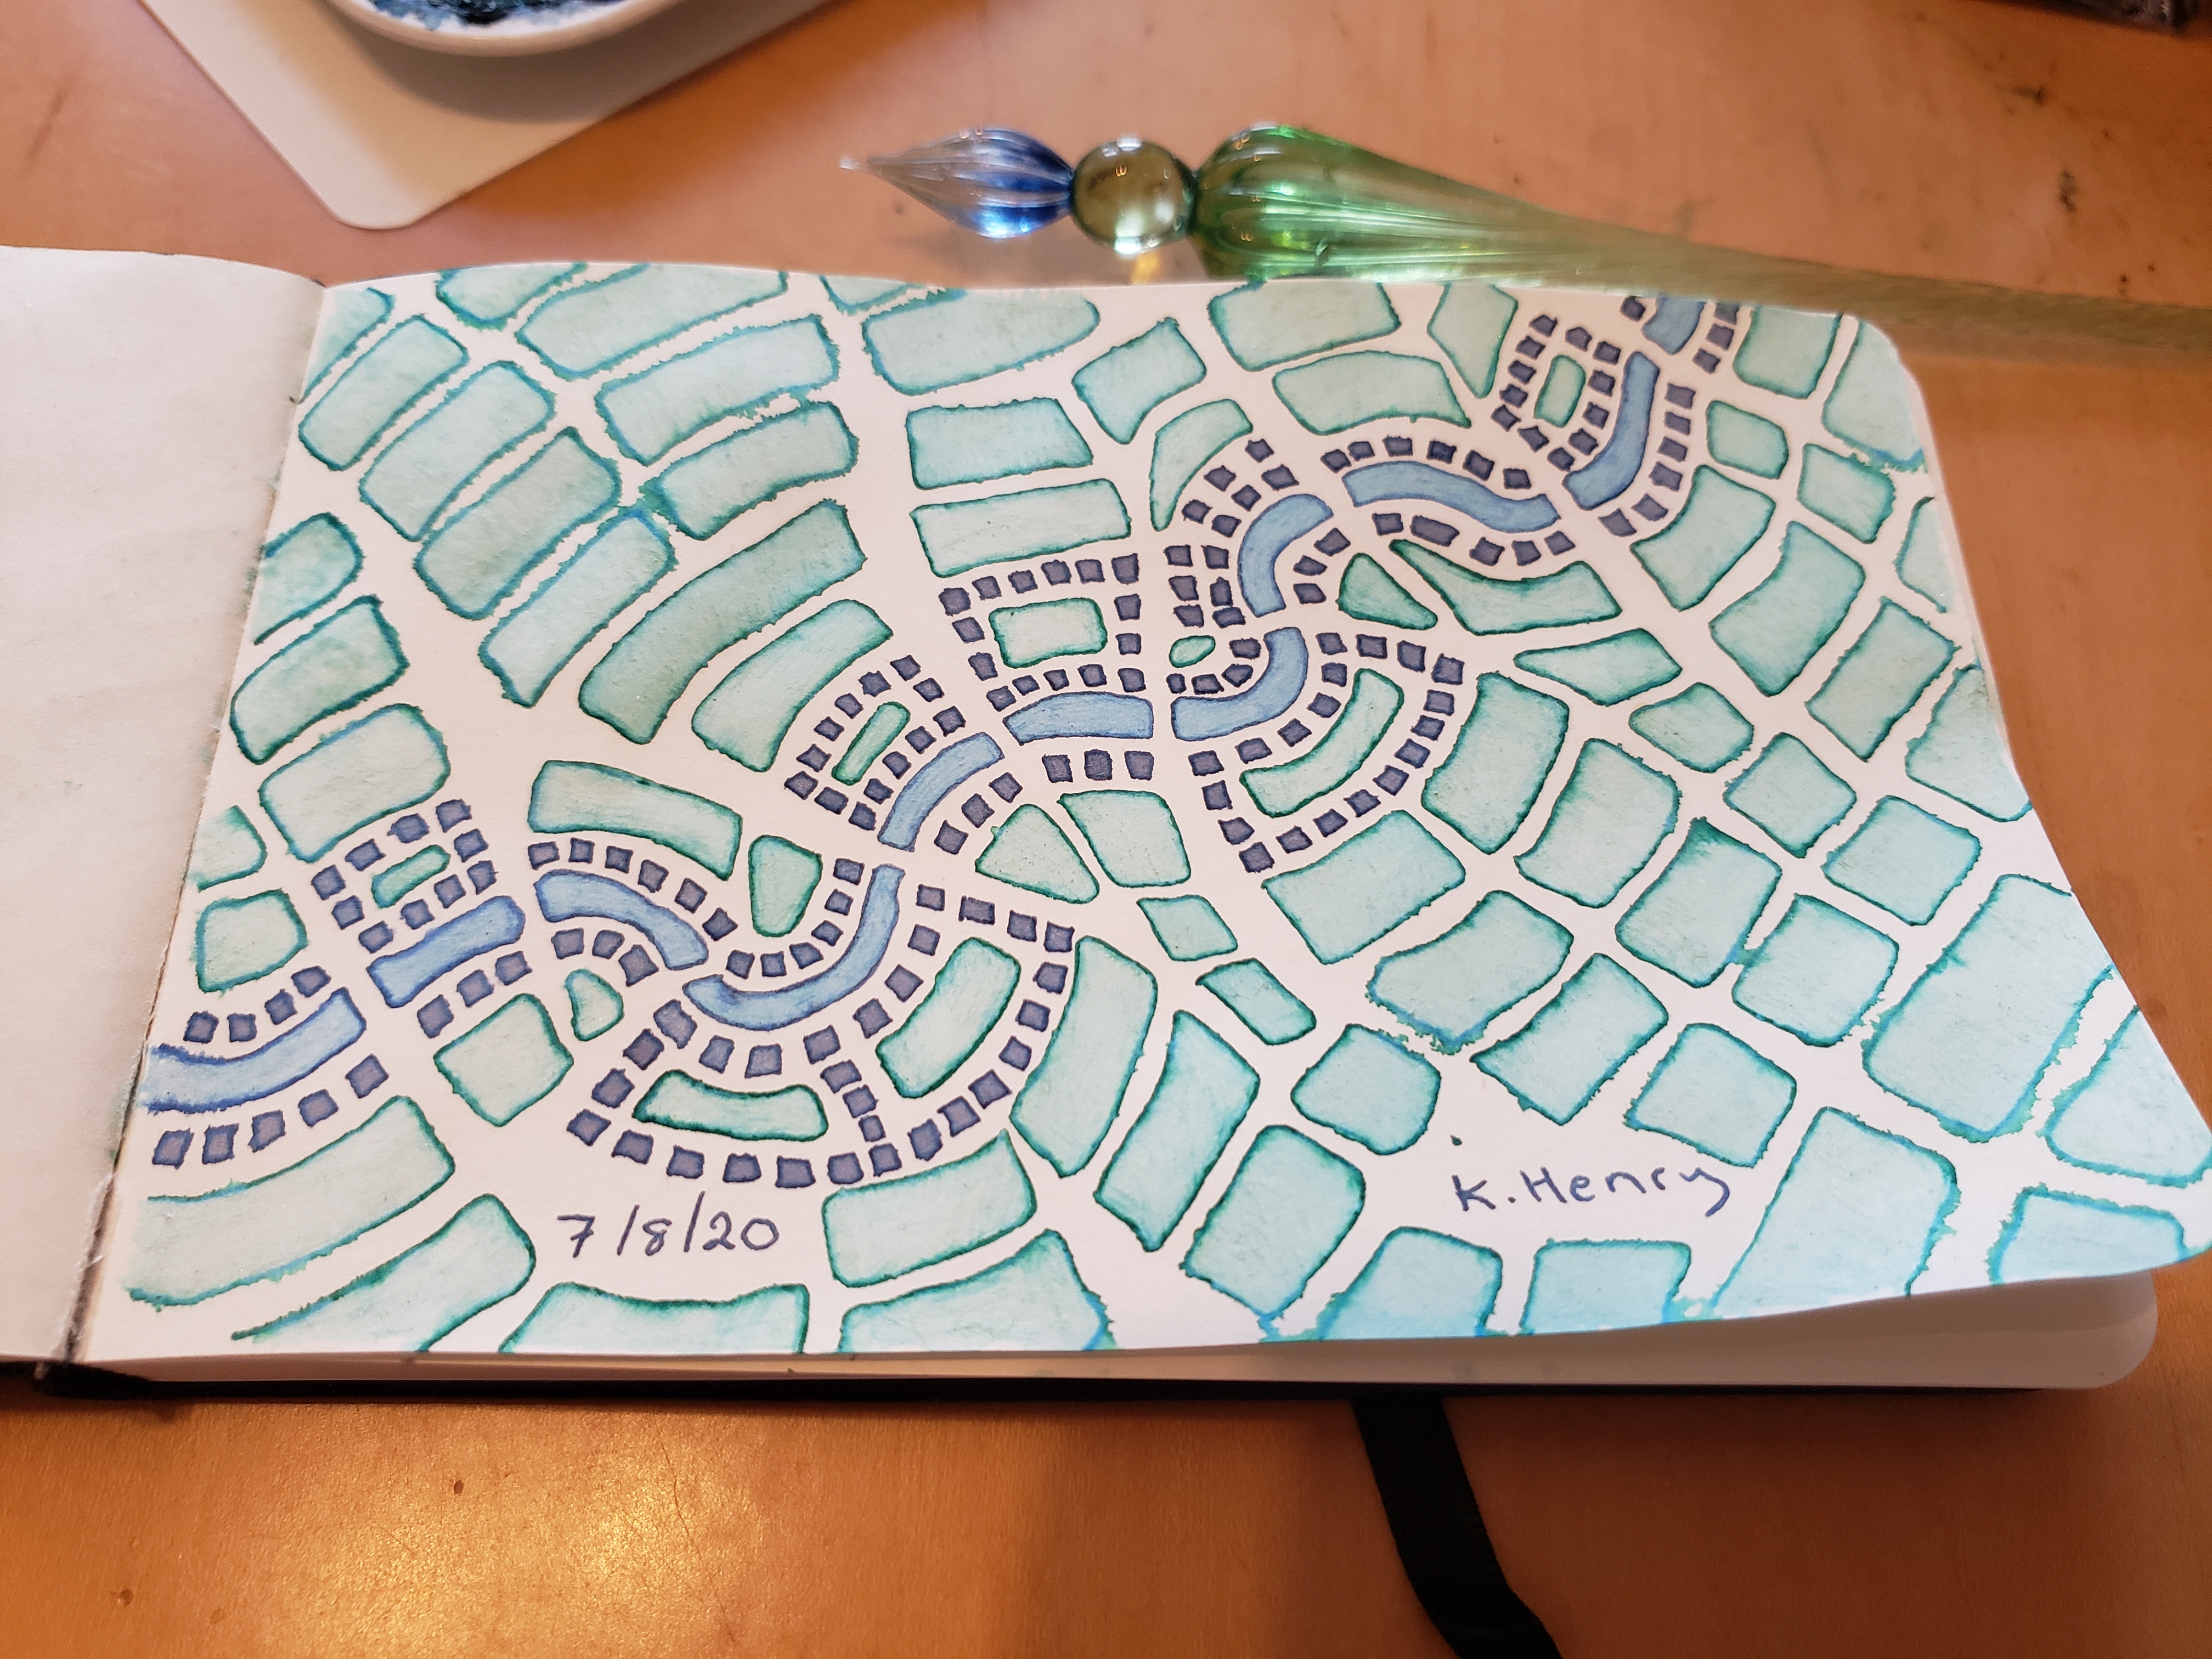 7/8/20
K. Henry